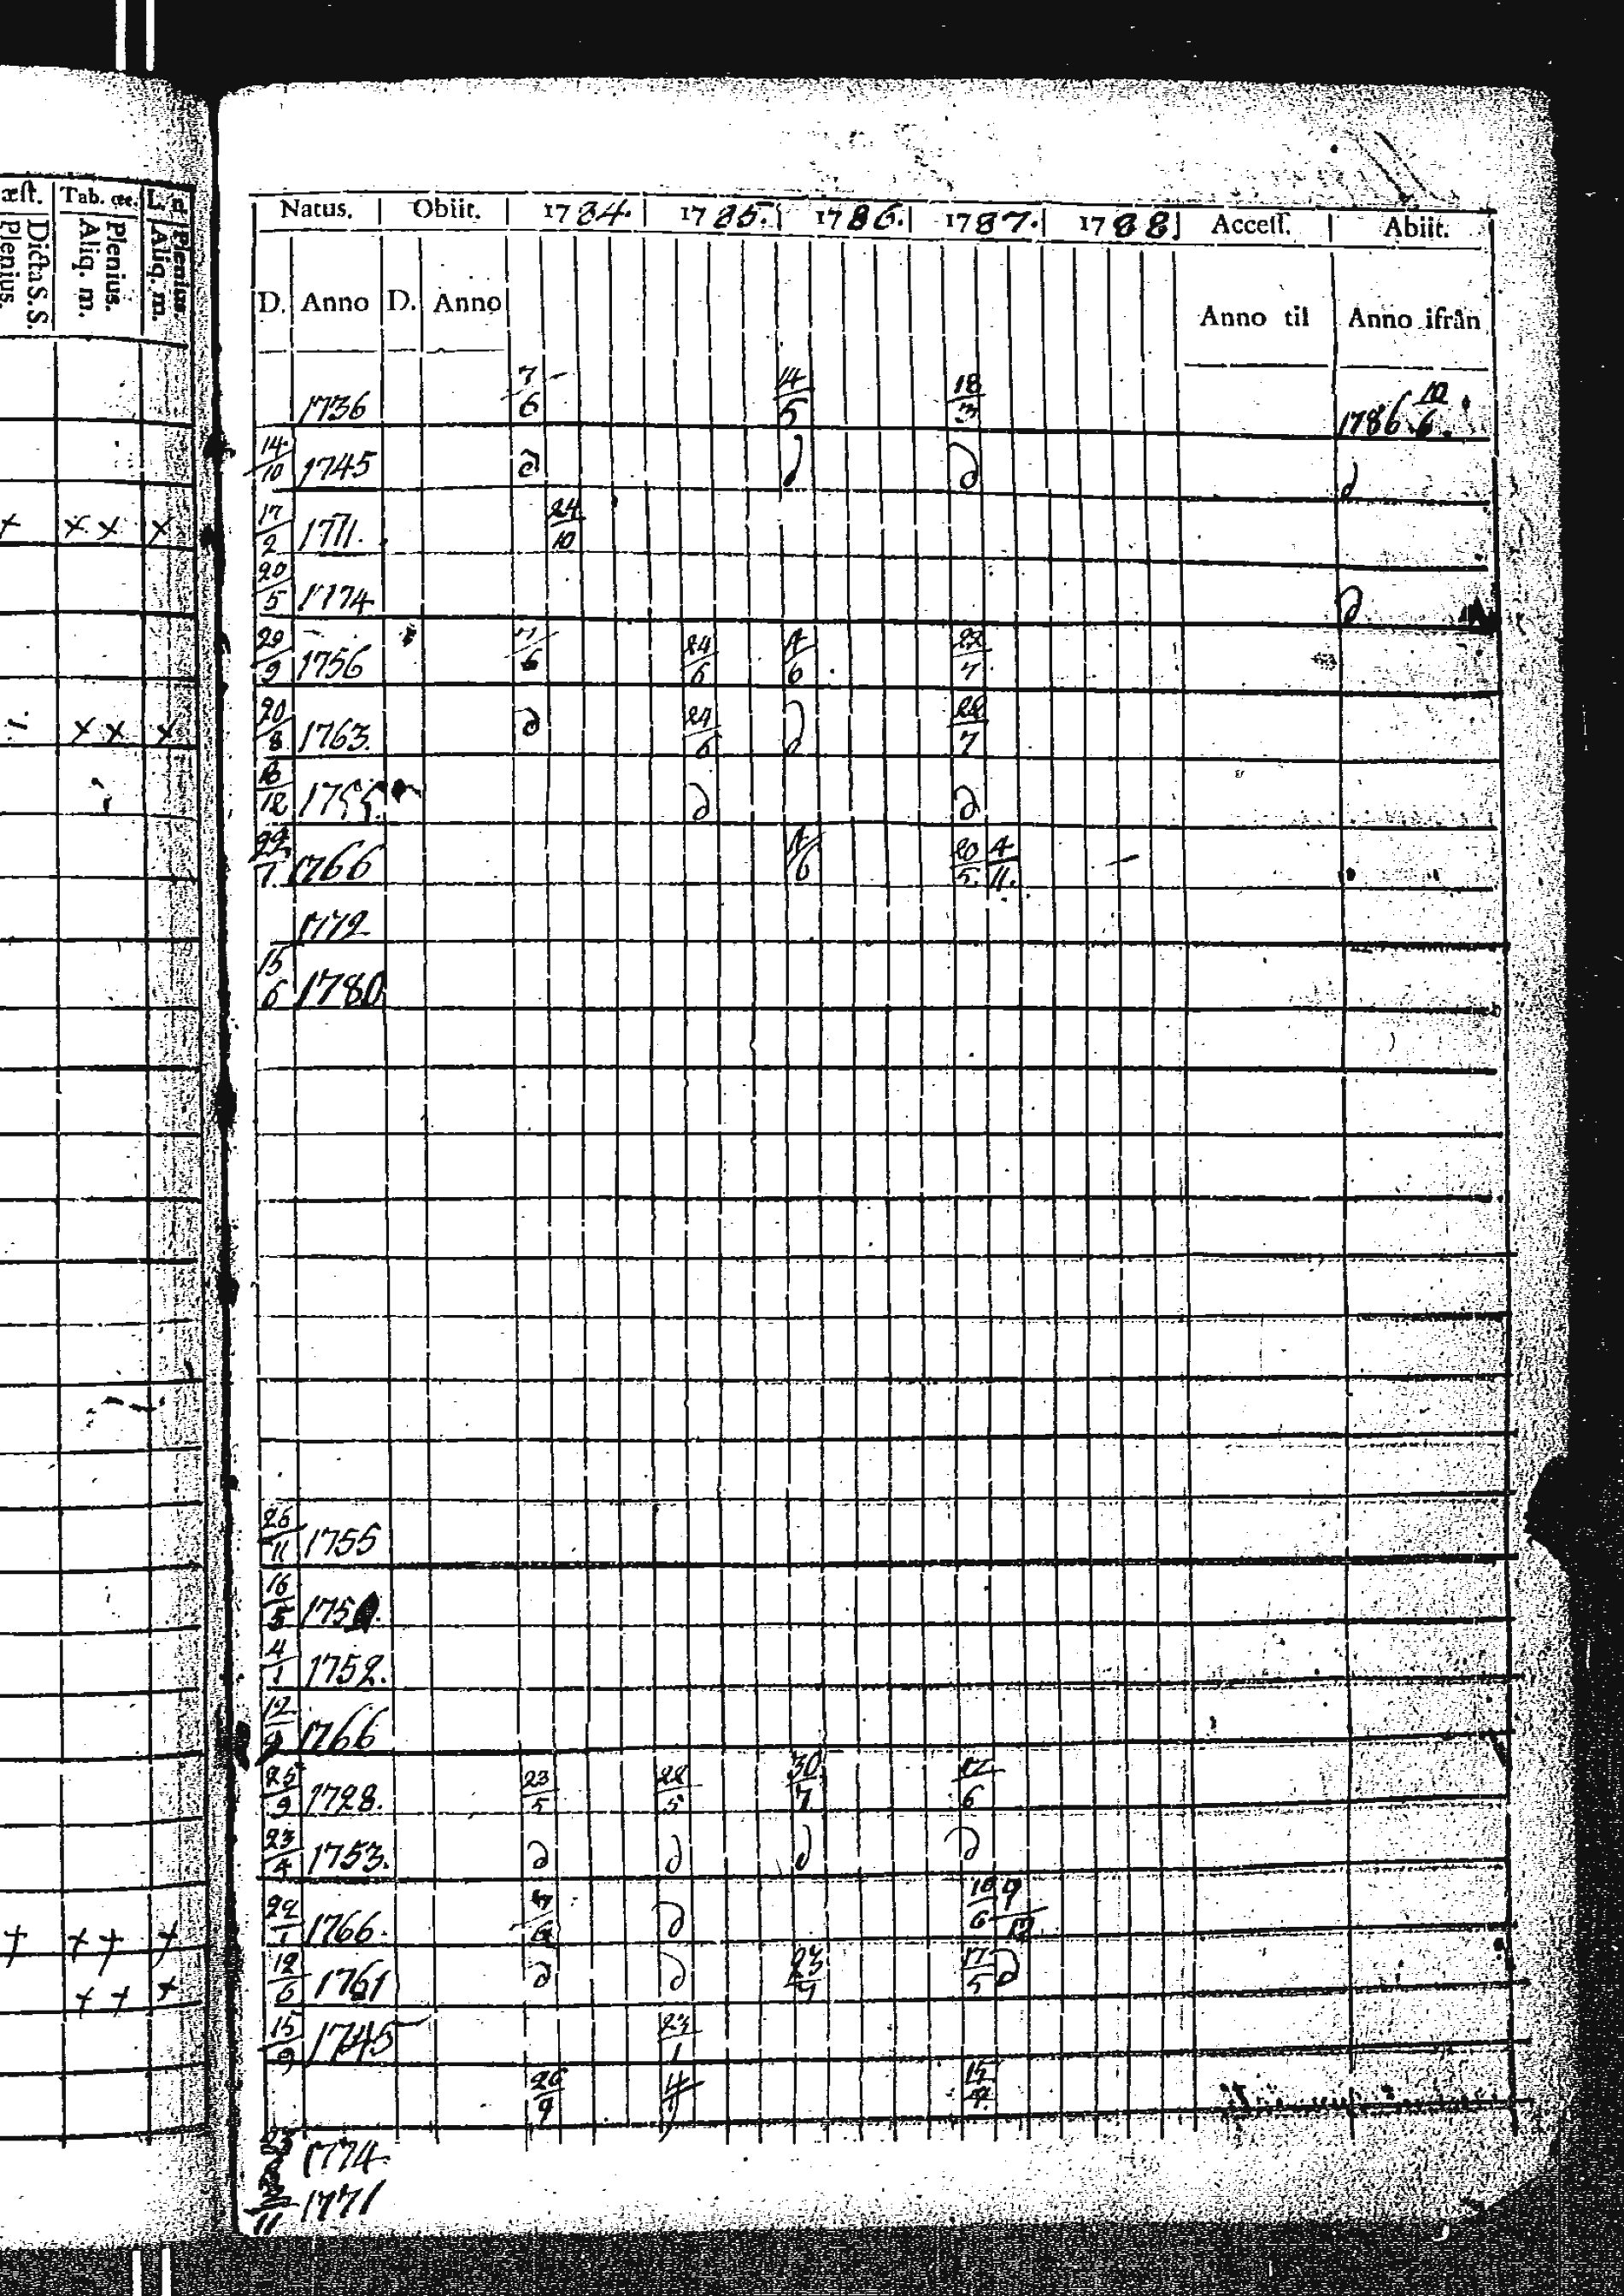 æſt. Tab. œc. L. n.
Plenius. Dicta S. S. Aliq. m. Plenius. Aliq. m. Plenius.
Natus. Obiit. 1784. 1785. 1786. 1787. 1788. Acceſſ. Abiit.
D. Anno D. Anno Anno til Anno ifrån
1736 7/6 14/5 18/3 1786 10/6.
14/10 1745 d d d d
+ x x x 17/2 1771. 24/10
20/5 1774 d
29/9 1756 7/6 24/6 4/6 22/7
x x x 20/8 1763. d 24/6 d 22/7
/12 d d
22/7 1766 4/6 20/5 4/11.
1772
15/6 1780
26/11 1755
16/5 175
4/1 1752.
12/9 1766
25/9 1728. 23/5 28/5 30/7 12/6
23/4 1753. d d d d
+ + + + 22/1 1766. d 10/6 9/12
+ + + 12/6 1761 d d 23/4 17/5 d
15/9 1745 23/1
26/9 4/7 15/4
1774
/11 1771